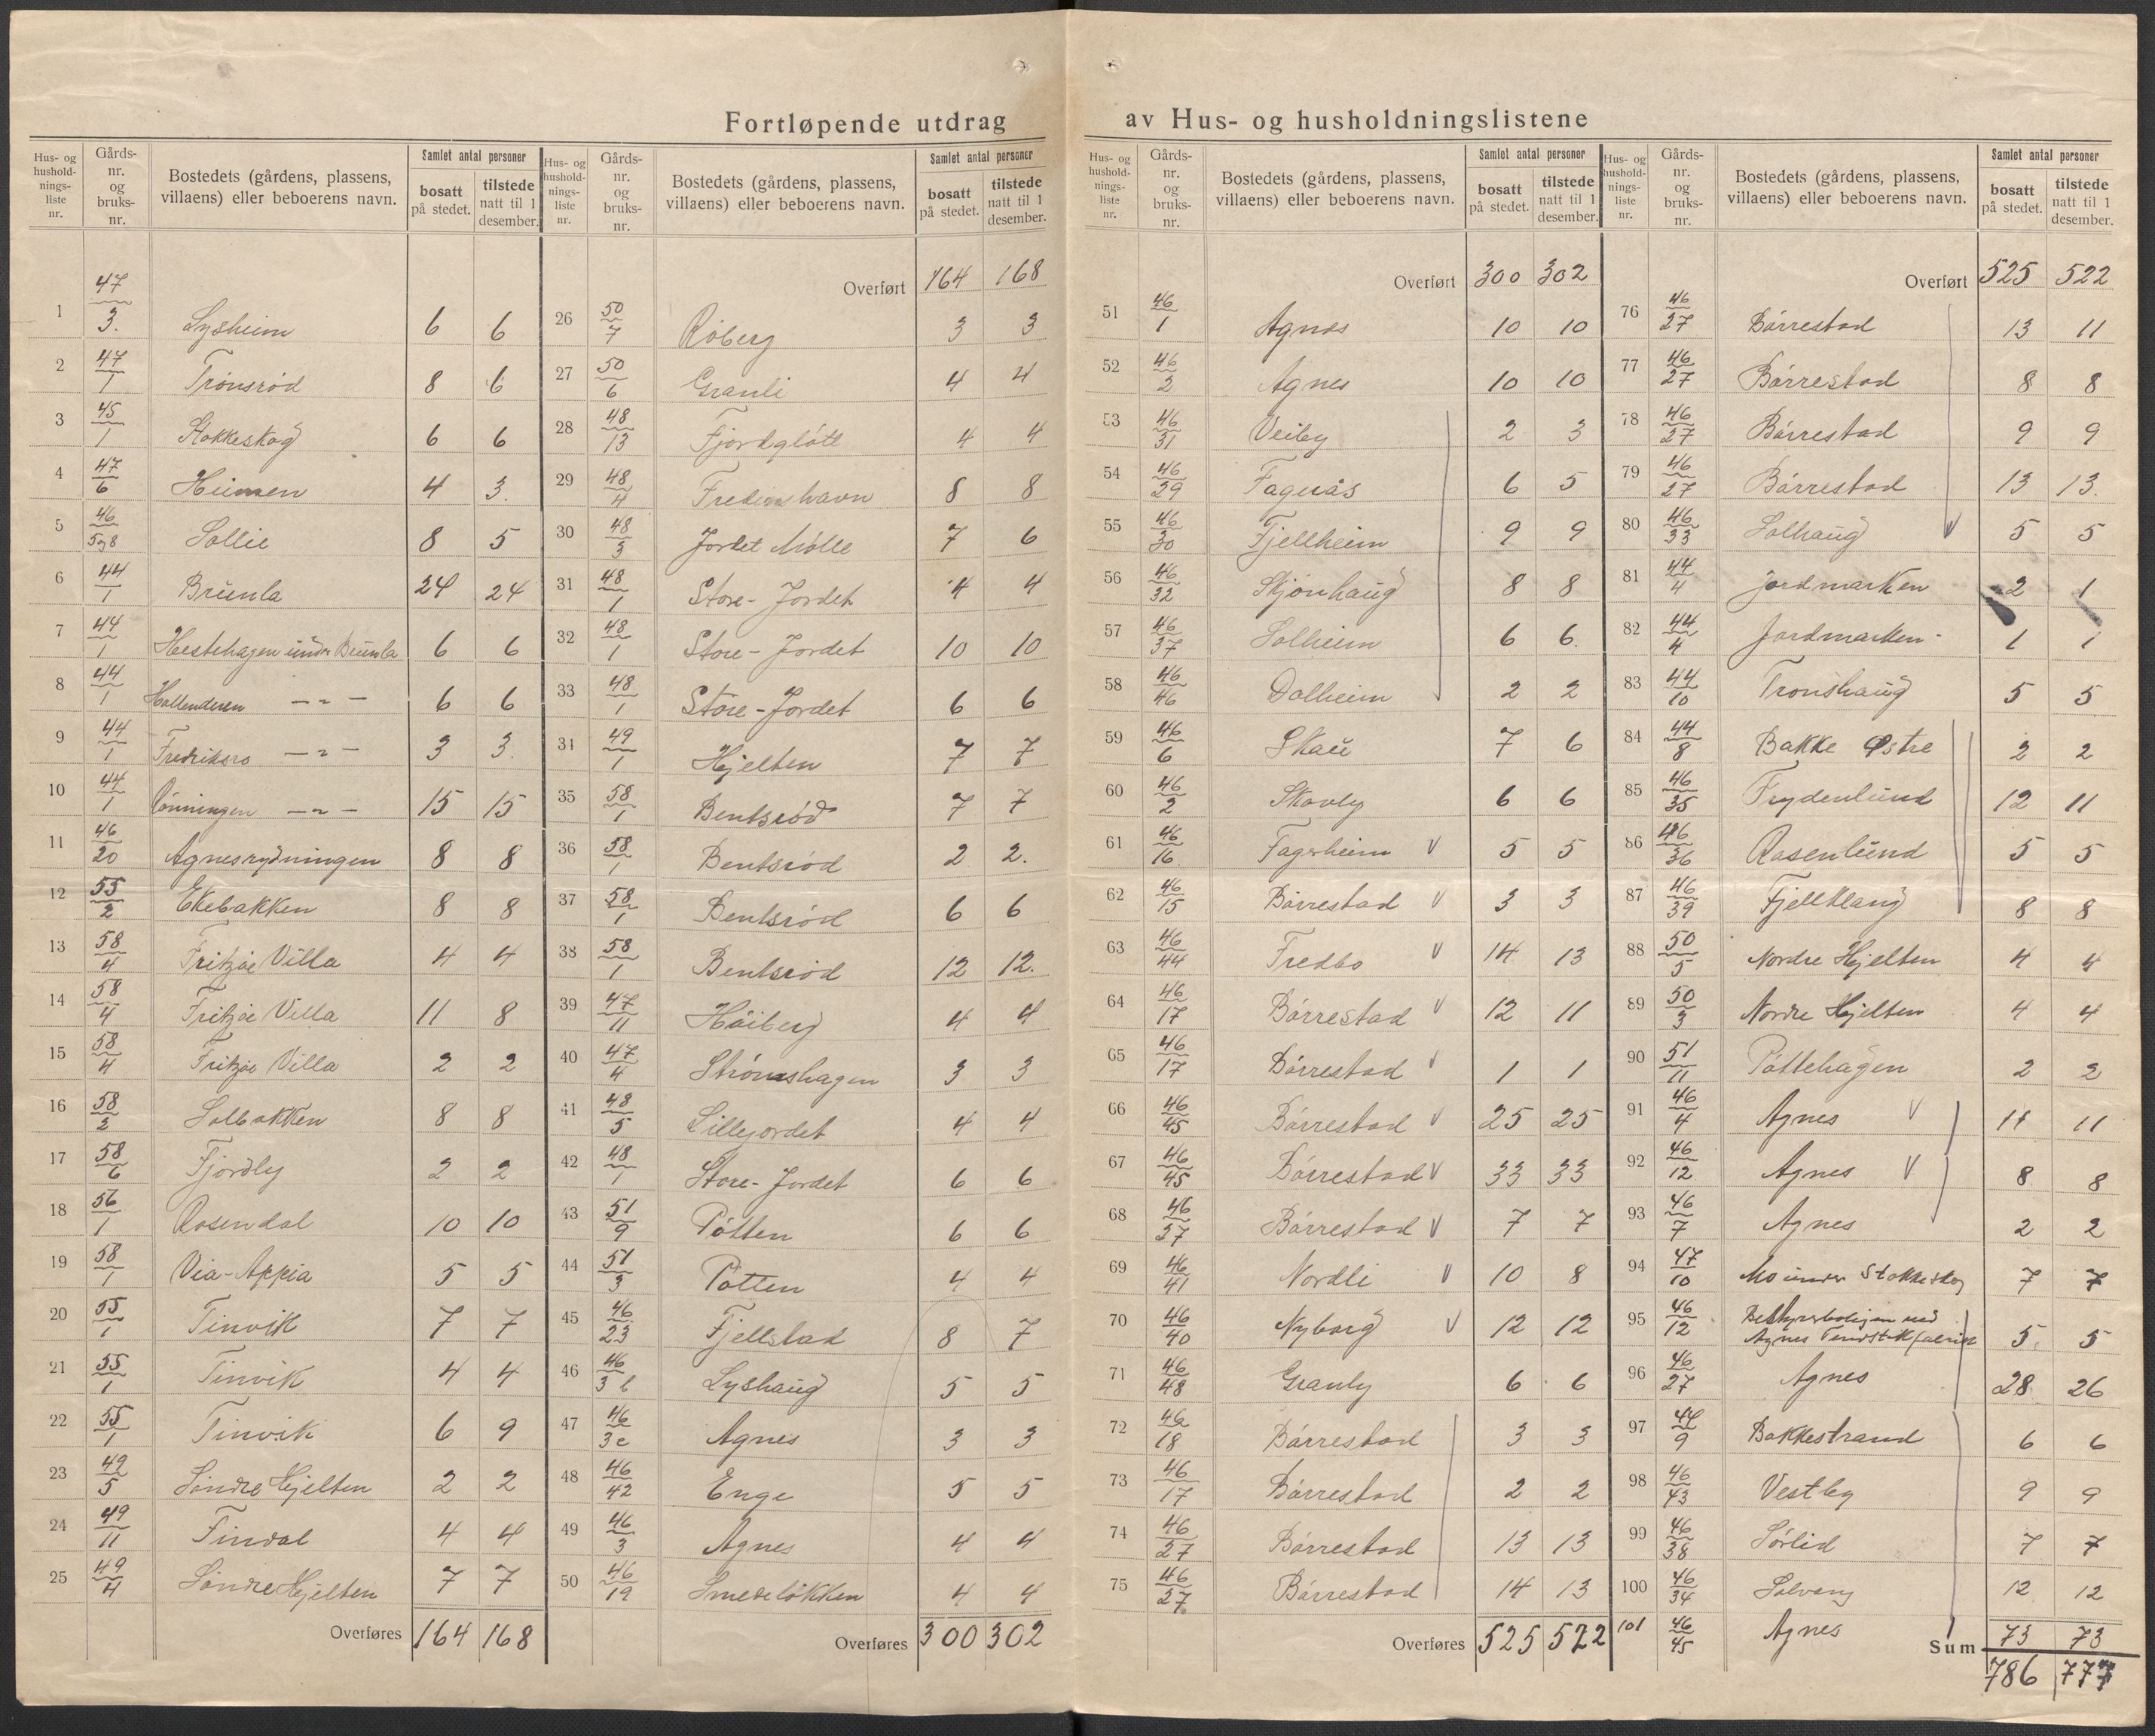 Fortløpende utdrag av Hus- og husholdningslistene
Hus- og hushold-nings-liste nr. | Gårds-nr. og bruks-nr. | Bostedets (gårdens, plassens, villaens) eller beboerens navn. | Samlet antal personer | bosatt på stedet. | tilstede natt til 1 desember.
1 47/3. Lysheim 6 6
2 47/1 Trönsröd 8 6
3 45/1 Stokkeskog 6 6
4 47/6 Heimen 4 3.
5 46/5og8 Sollie 8 5
6 44/1 Brunla 24 24
7 44/1 Hestehagen under Brunla 6 6
8 44/1 Hollenderen — " — 6 6
9 44/1 Fredriksro — " — 3 3
10 44/1 Rönningen — " — 15 15
11 46/20 Agnesrydningen 8 8
12 55/2 Ekebakken 8 8
13 58/4 Fritzöe Villa 4 4
14 58/4 Fritzöe Villa 11 8
15 58/4 Fritzöe Villa 2 2
16 58/2 Solbakken 8 8
17 58/6 Fjordly 2 2
18 56/1 Rosendal 10 10
19 58/1 Via-Appia 5 5
20 55/1 Tinvik 7 7
21 55/1 Tinvik 4 4
22 55/1 Tinvik 6 9
23 49/5 Söndre Hjelten 2 2
24 49/11 Findal 4 4
25 49/4 Söndre Hjelten 7 7
Overføres 164 168
Hus- og hushold-nings-liste nr. | Gårds-nr. og bruks-nr. | Bostedets (gårdens, plassens, villaens) eller beboerens navn. | Samlet antal personer | bosatt på stedet. | tilstede natt til 1 desember.
Overført 164 168
26 50/7 Röberg 3 3
27 50/6 Granli 4 4
28 48/13 Fjordglött 4 4
29 48/4 Fredenshavn 8 8
30 48/3 Jordet Mölle 7 6
31 48/1 Store-Jordet 4 4
32 48/1 Store-Jordet 10 10
33 48/1 Store-Jordet 6 6
34 49/1 Hjelten 7 7
35 58/1 Bentsröd 7 7
36 58/1 Bentsröd 2 2.
37 58/1 Bentsröd 6 6
38 58/1 Bentsröd 12 12.
39 47/11 Höiberg 4 4
40 47/4 Strömshagen 3 3
41 48/5 Lillejordet 4 4
42 48/1 Store-Jordet 6 6
43 51/9 Pötten 6 6
44 51/3 Pötten 4 4
45 46/23 Fjellstad 8 7
46 46/3 b Lyshaug 5 5
47 46/3c Agnes 3 3
48 46/42 Enge 5 5
49 46/3 Agnes 4 4
50 46/19 Smedelökken 4 4
Overføres 300 302
Hus- og hushold-nings-liste nr. | Gårds-nr. og bruks-nr. | Bostedets (gårdens, plassens, villaens) eller beboerens navn. | Samlet antal personer | bosatt på stedet. | tilstede natt til 1 desember.
Overført 300 302
51 46/1 Agnes 10 10
52 46/2 Agnes 10 10
53 46/31 Veiby 2 3
54 46/29 Fagnäs 6 5
55 46/30 Fjellheim 9 9
56 46/32 Skjönhaug 8 8
57 46/37 Solheim 6 6.
58 46/46 Dalheim 2 2
59 46/6 Skau 7 6
60 46/2 Skovly 6 6
61 46/16 Fagerheim V 5 5
62 46/15 Börrestad V 3 3
63 46/44 Fredbo V 14 13
64 46/17 Börrestad V 12 11
65 46/17 Börrestad V 1 1
66 46/45 Börrestad V 25 25
67 46/45 Börrestad V 33 33
68 46/27 Börrestad V 7 7
69 46/41 Nordli V 10 8
70 46/40 Nyborg V 12 12
71 46/48 Granly 6 6
72 46/18 Börrestad 3 3
73 46/17 Börrestad 2 2
74 46/27 Börrestad 13 13
75 46/27. Börrestad 14 13
Overføres 525 522
Hus- og hushold-nings-liste nr. | Gårds-nr. og bruks-nr. | Bostedets (gårdens, plassens, villaens) eller beboerens navn. | Samlet antal personer | bosatt på stedet. | tilstede natt til 1 desember.
Overført 525 522
76 46/27 Börrestad 13 11
77 46/27 Börrestad 8 8
78 46/27 Börrestad 9 9
79 46/27 Börrestad 13 13.
80 46/33 Solhaug 5 5
81 44/4 Jordmarken 2 1
82 44/4 Jordmarken 1 1
83 44/10 Tronshaug 5 5
84 44/8 Bakke Østre 2 2
85 46/35 Frydenlund 12 11
86 46/36 Rosenlund 5 5
87 46/39 Fjellklang 8 8
88 50/5 Nordre Hjelten 4 4
89 50/3 Nordre Hjelten 4 4
90 51/11 Pöttehagen 2 2
91 46/4 Agnes V 11 11
92 46/12 Agnes V 8 8
93 46/7 Agnes 2 2
94 47/10 Mo under Stokkeskog 7 7
95 46/12 Bestyrerboligen ved
Agnes Tendstikfabrik 5 5
96 46/27 Agnes 28 26
97 44/9 Bakkestrand 6 6
98 46/43 Vestby 9 9
99 46/38 Sörlid 7 7
100 46/34 Solvang 12 12
101 46/45 Agnes 73 73
Sum 786 777